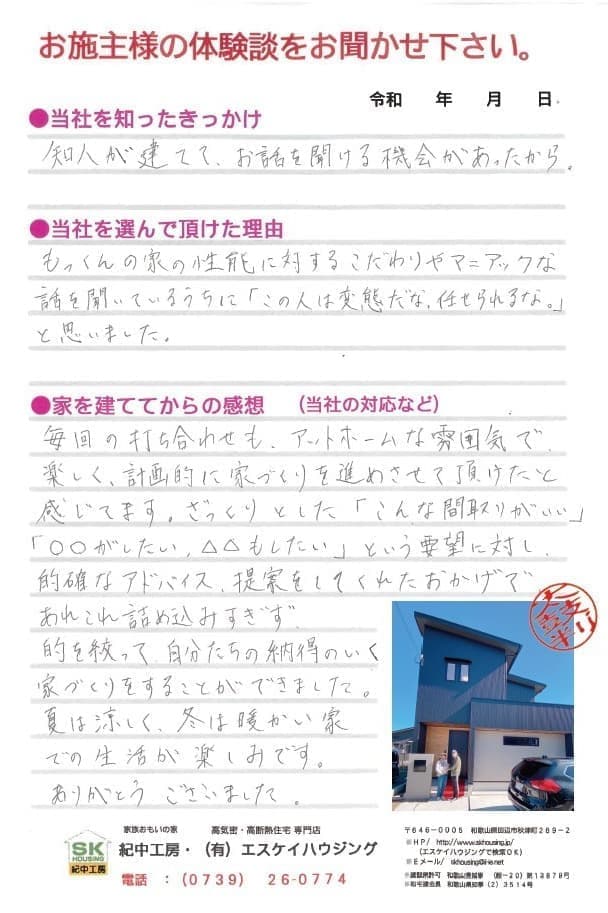 お施主様の体験談をお聞かせ下さい。
令和 年 月 日
●当社を知ったきっかけ
知人が建てて、お話を聞ける機会があったから。
●当社を選んで頂けた理由
もっくんの家の性能に対するこだわりやマニアックな
話を聞いているうちに「この人は変態だな、任せられるな。」
と思いました。
●家を建ててからの感想 (当社の対応など)
毎回の打ち合わせも、アットホームな雰囲気で、
楽しく、計画的に家づくりを進めさせて頂けたと
感じてます。ざっくりとした「こんな間取りがいい」
「○○がしたい、△△もしたい」という要望に対し、
的確なアドバイス、提案をしてくれたおかげで
あれこれ詰め込みすぎず、
的を絞って、自分たちの納得のいく
家づくりをすることができました。
夏は涼しく、冬は暖かい家
での生活が楽しみです。
ありがとうございました。
家族おもいの家 高気密・高断熱住宅 専門店
SK
HOUSING
紀中工房
紀中工房・(有)エスケイハウジング
電話 :(0739) 26-0774
〒646-0005 和歌山県田辺市秋津町269-2
■HP/ http://www.skhousing.jp/
(エスケイハウジングで検索OK)
■Eメール/ skhousing@i-ie.net